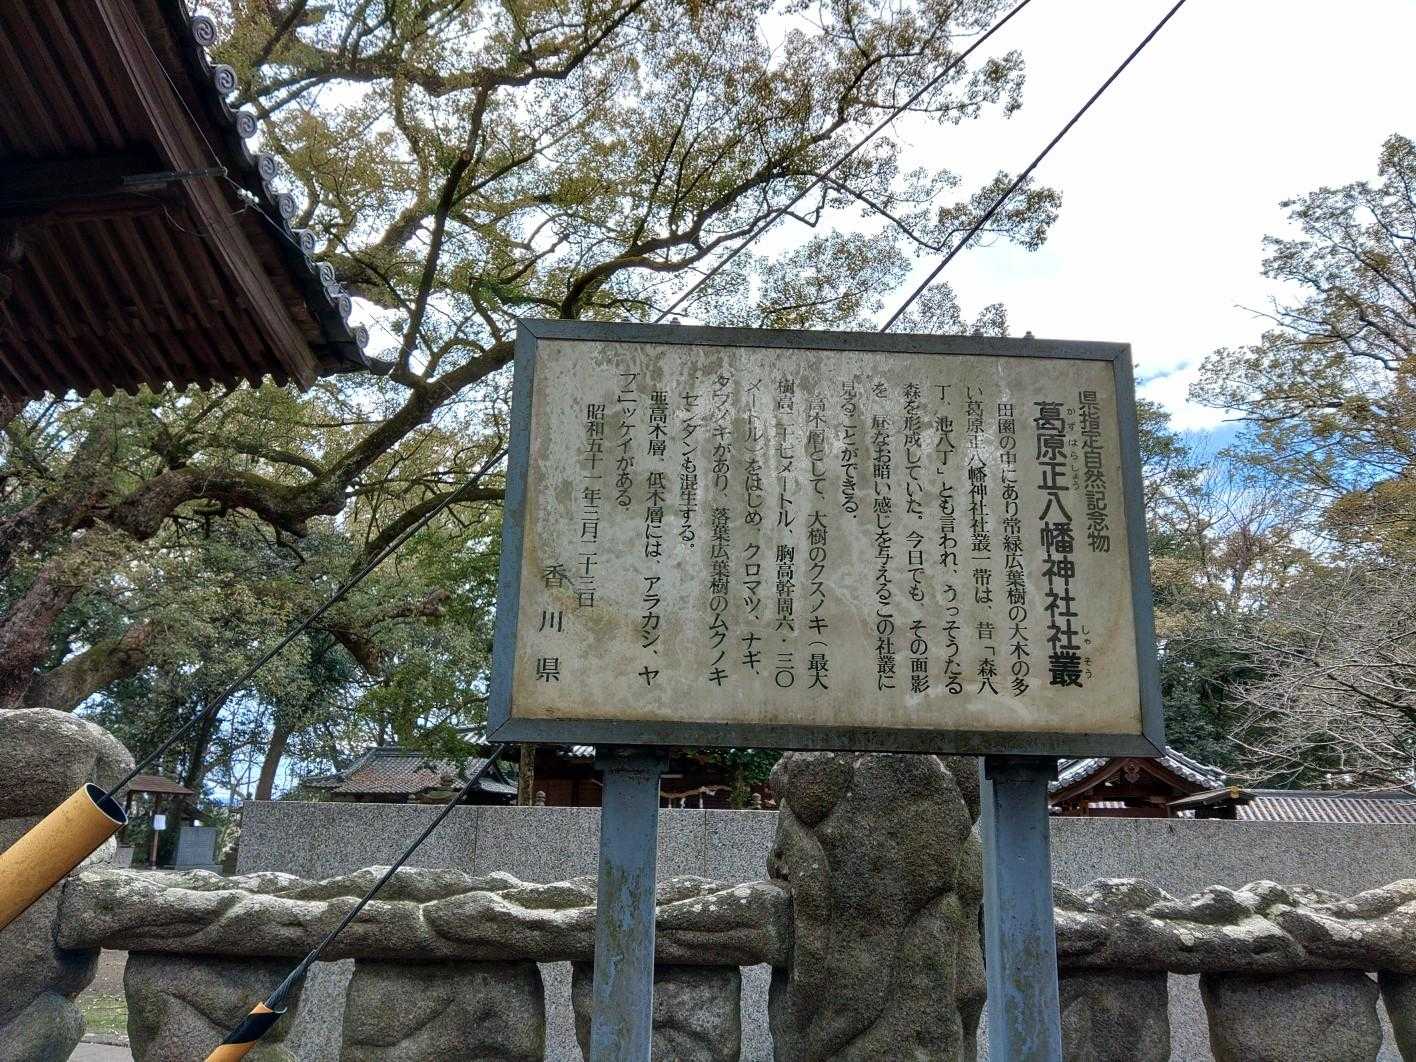 県指定自然記念物
葛原正八幡神社社叢
かずはらしょう
しゃそう
田園の中にあり常緑広葉樹の大木の多
い葛原正八幡神社社叢一帯は、昔「森八
丁、池八丁」とも言われ、うっそうたる
森を形成していた。今日でも、その面影
を 昼なお暗い感じを与えるこの社叢に
見ることができる。
高木層として、大樹のクスノキ(最大
樹高二十七メートル、胸高幹周六・三〇
メートル)をはじめ クロマツ、ナギ、
タブノキがあり、落葉広葉樹のムクノキ
センダンも混生する。
亜高木層、低木層には、アラカシ、ヤ
ブニッケイがある
昭和五十一年三月二十三日
香川県